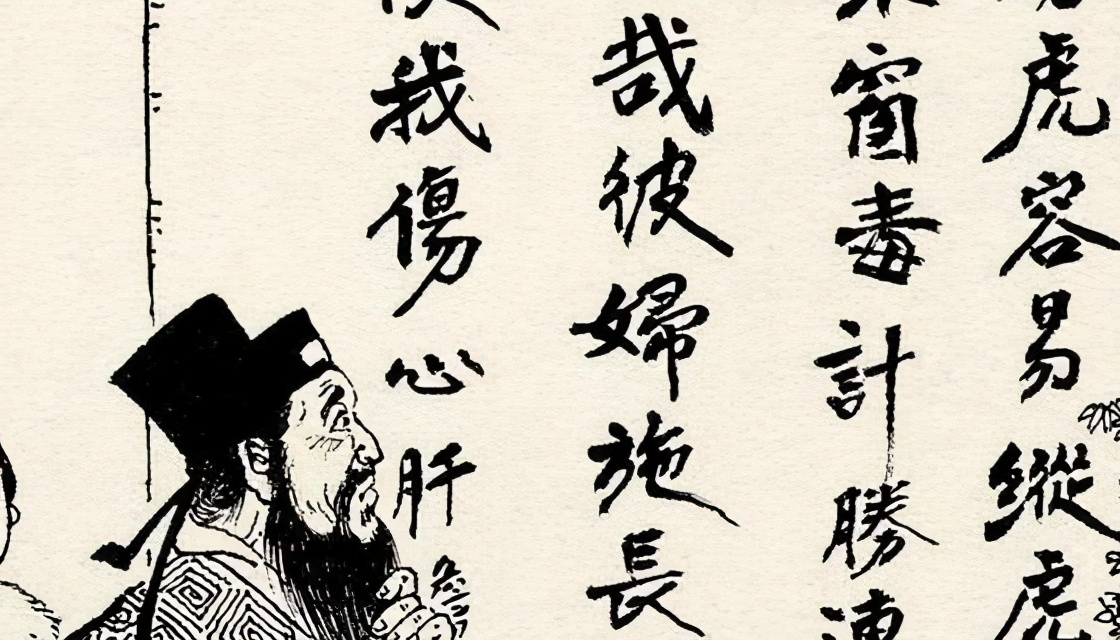 虎容易縱虎
窗毒計勝
哉彼婦施長
我傷心肝